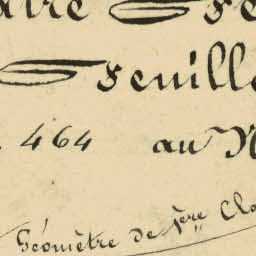 Feuille
464 au N
Géomètre de 1ère Cla